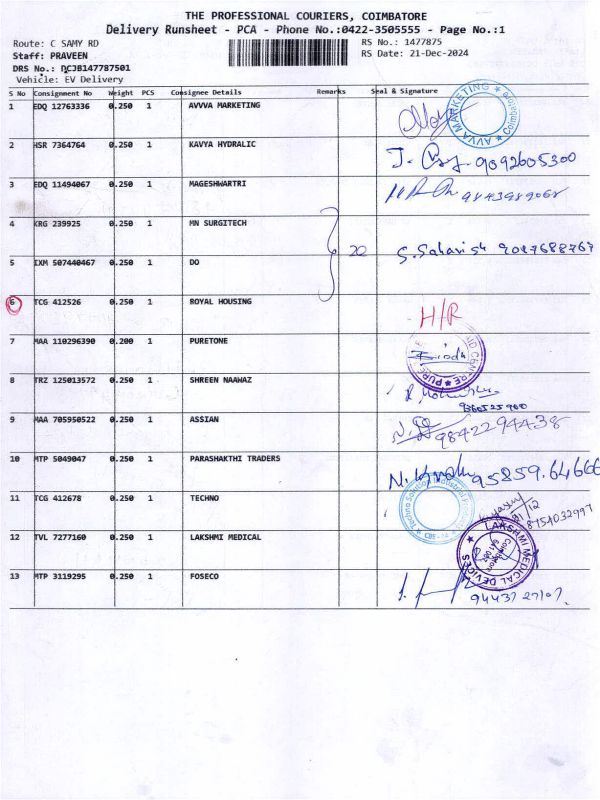 THE PROFESSIONAL COURIERS, COIMBATORE
Delivery Runsheet - PCA - Phone No.:0422-3505555 - Page No.:1
Route: C SAMY RD RS No.: 1477875
Staff: PRAVEEN RS Date: 21-Dec-2024
DRS No.: DCJB147787501
Vehicle: EV Delivery
S No Consignment No Weight PCS Consignee Details Remarks Seal & Signature
1 EDQ 12763336 0.250 1 AVVVA MARKETING
AVVA MARKETING Coimbatore
2 HSR 7364764 0.250 1 KAVYA HYDRALIC 9092605300
3 EDQ 11494067 0.250 1 MAGESHWARTRI
4 KRG 239925 0.250 1 MN SURGITECH
5 IXM 507440467 0.250 1 DO
6 TCG 412526 0.250 1 ROYAL HOUSING H/R
7 MAA 110296390 0.200 1 PURETONE
8 TRZ 125013572 0.250 1 SHREEN NAAWAZ
9 MAA 705950522 0.250 1 ASSIAN 9842294438
10 MTP 5049047 0.250 1 PARASHAKTHI TRADERS 95859.64666
11 TCG 412678 0.250 1 TECHNO
12 TVL 7277160 0.250 1 LAKSHMI MEDICAL 8754032997
LAKSHMI MEDICAL DEVICES
13 MTP 3119295 0.250 1 FOSECO